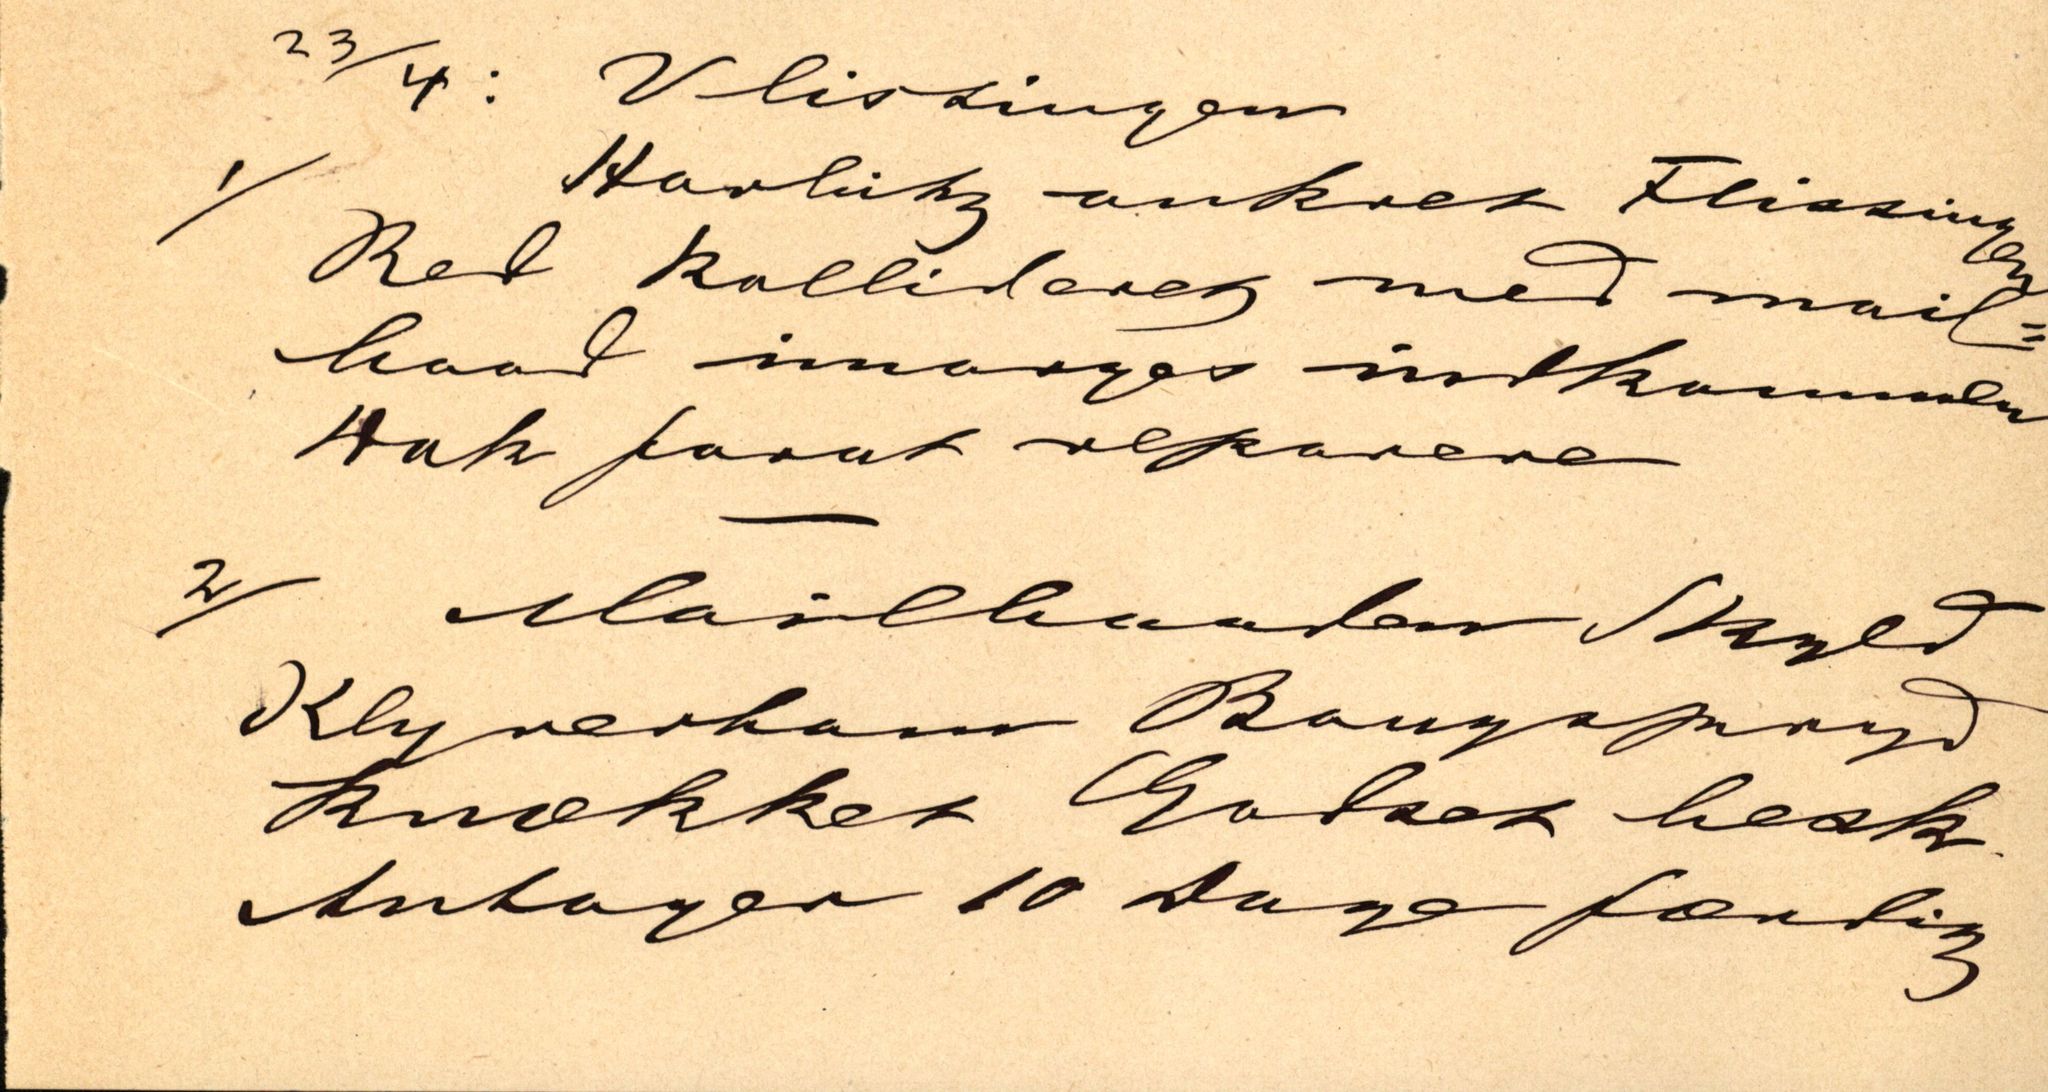 23/4: Vlissingen
1/ Havlütz ankret Flissingen
Red kollideret med mail=
baad imorges indkommen
Hak forut reparere
2/ Mailbaaden Skyld
Klyverbom Bougspryd
knækket Godset besk.
Antager 10 Dage færdig